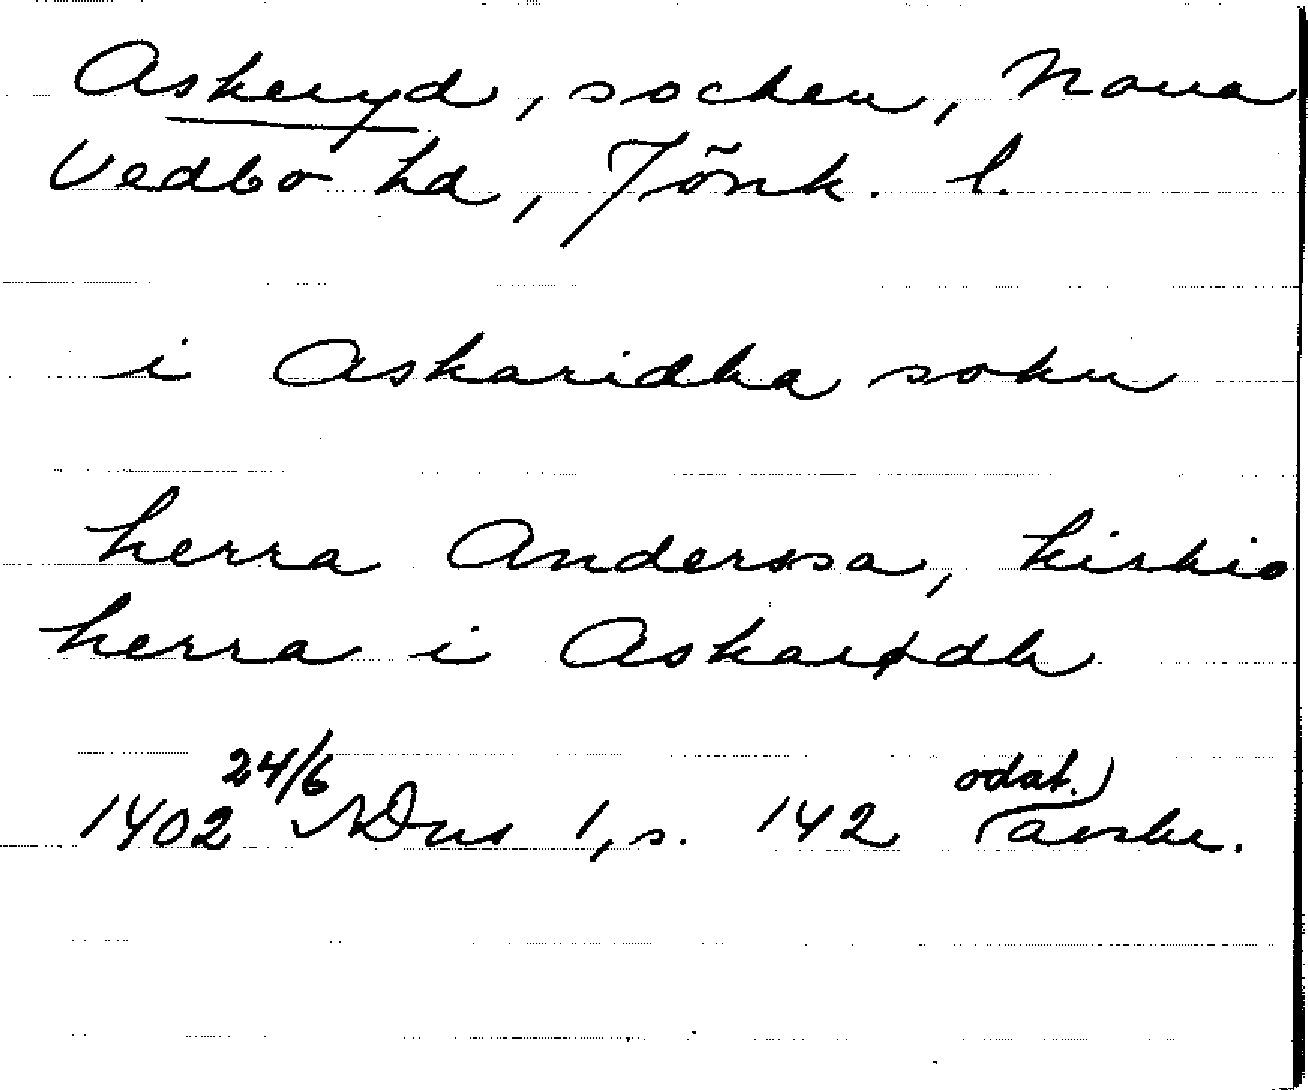 Askeryd, socken, Norra
Vedbo hd, Jönk. l.
i Askaridha sokn
herra Anderssa, kirkio
herra i Askaridh
24/6 odat.
1402 SDns 1, s. 142 avskr.